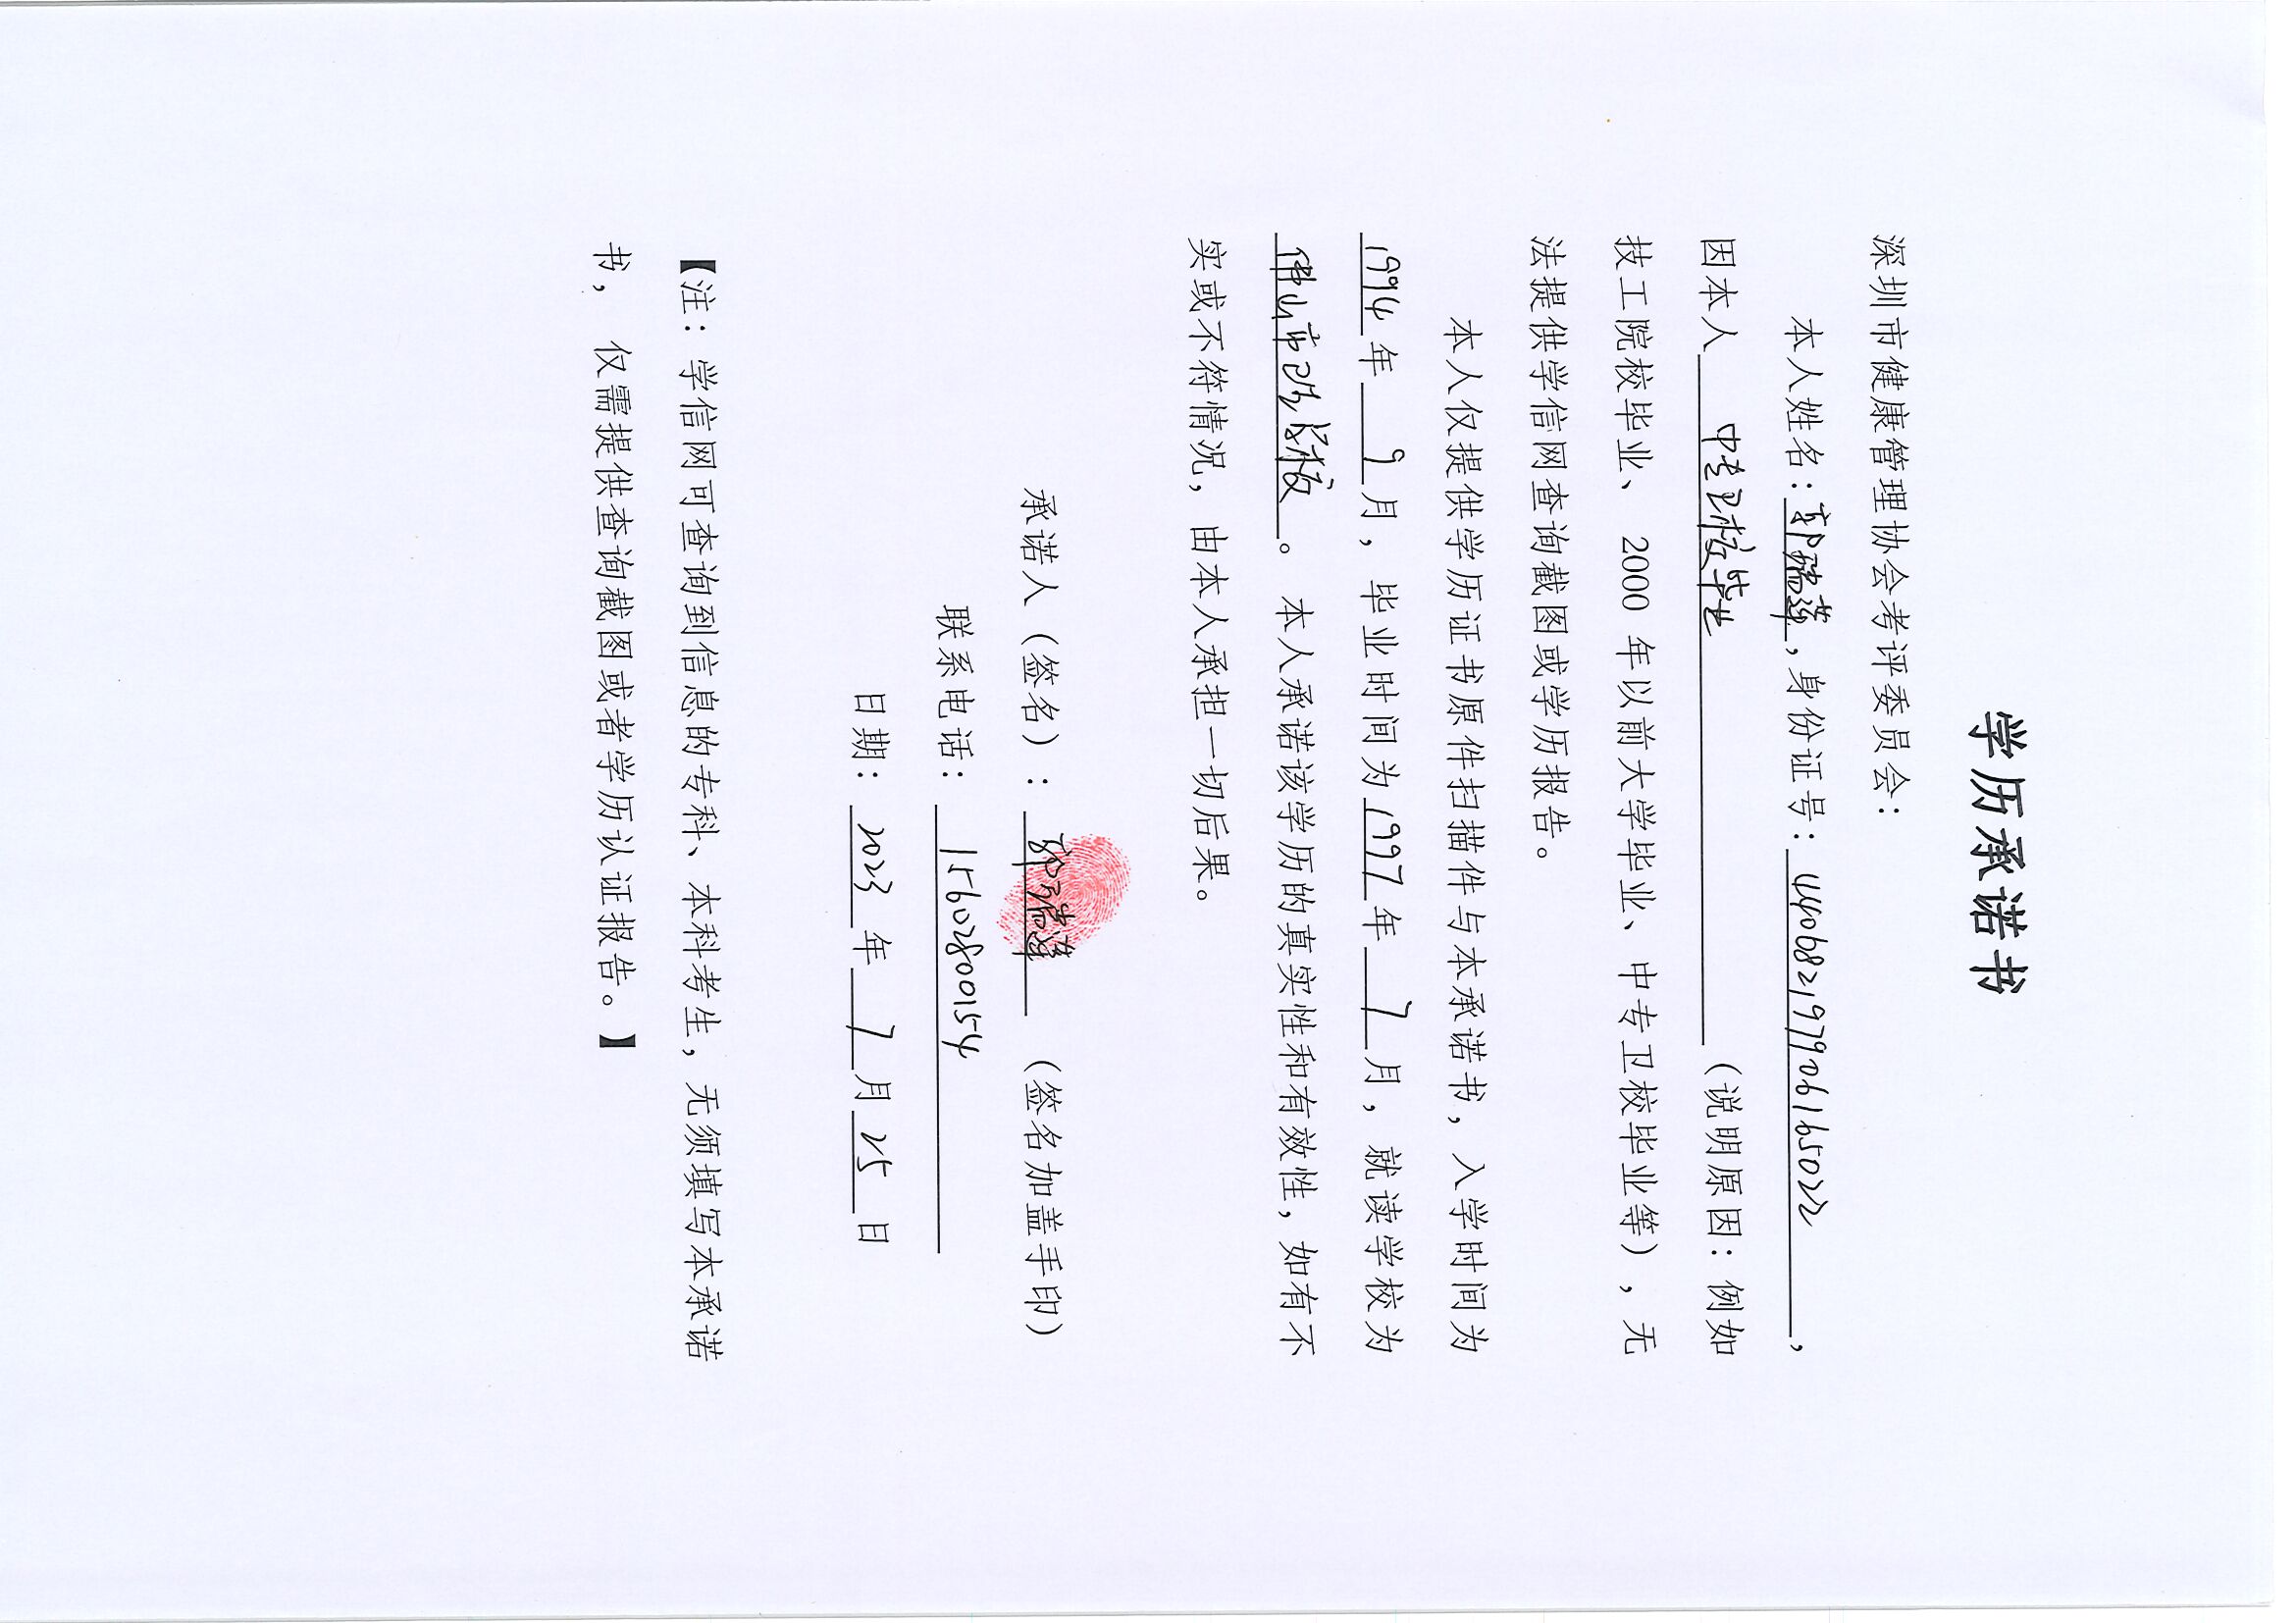 学历承诺书
深圳市健康管理协会考评委员会：
本人姓名：郭瑞莲，身份证号：440682197906165022，
因本人 中专卫校毕业 （说明原因：例如
技工院校毕业、 2000 年以前大学毕业、中专卫校毕业等），无
法提供学信网查询截图或学历报告。
本人仅提供学历证书原件扫描件与本承诺书，入学时间为
1994 年 9 月，毕业时间为 1997 年 7 月，就读学校为
佛山市卫生学校。本人承诺该学历的真实性和有效性，如有不
实或不符情况，由本人承担一切后果。
承诺人（签名）：郭瑞莲 （签名加盖手印）
联系电话：15602800154
日期：2023 年 7 月 25 日
【注：学信网可查询到信息的专科、本科考生，无须填写本承诺
书， 仅需提供查询截图或者学历认证报告。】